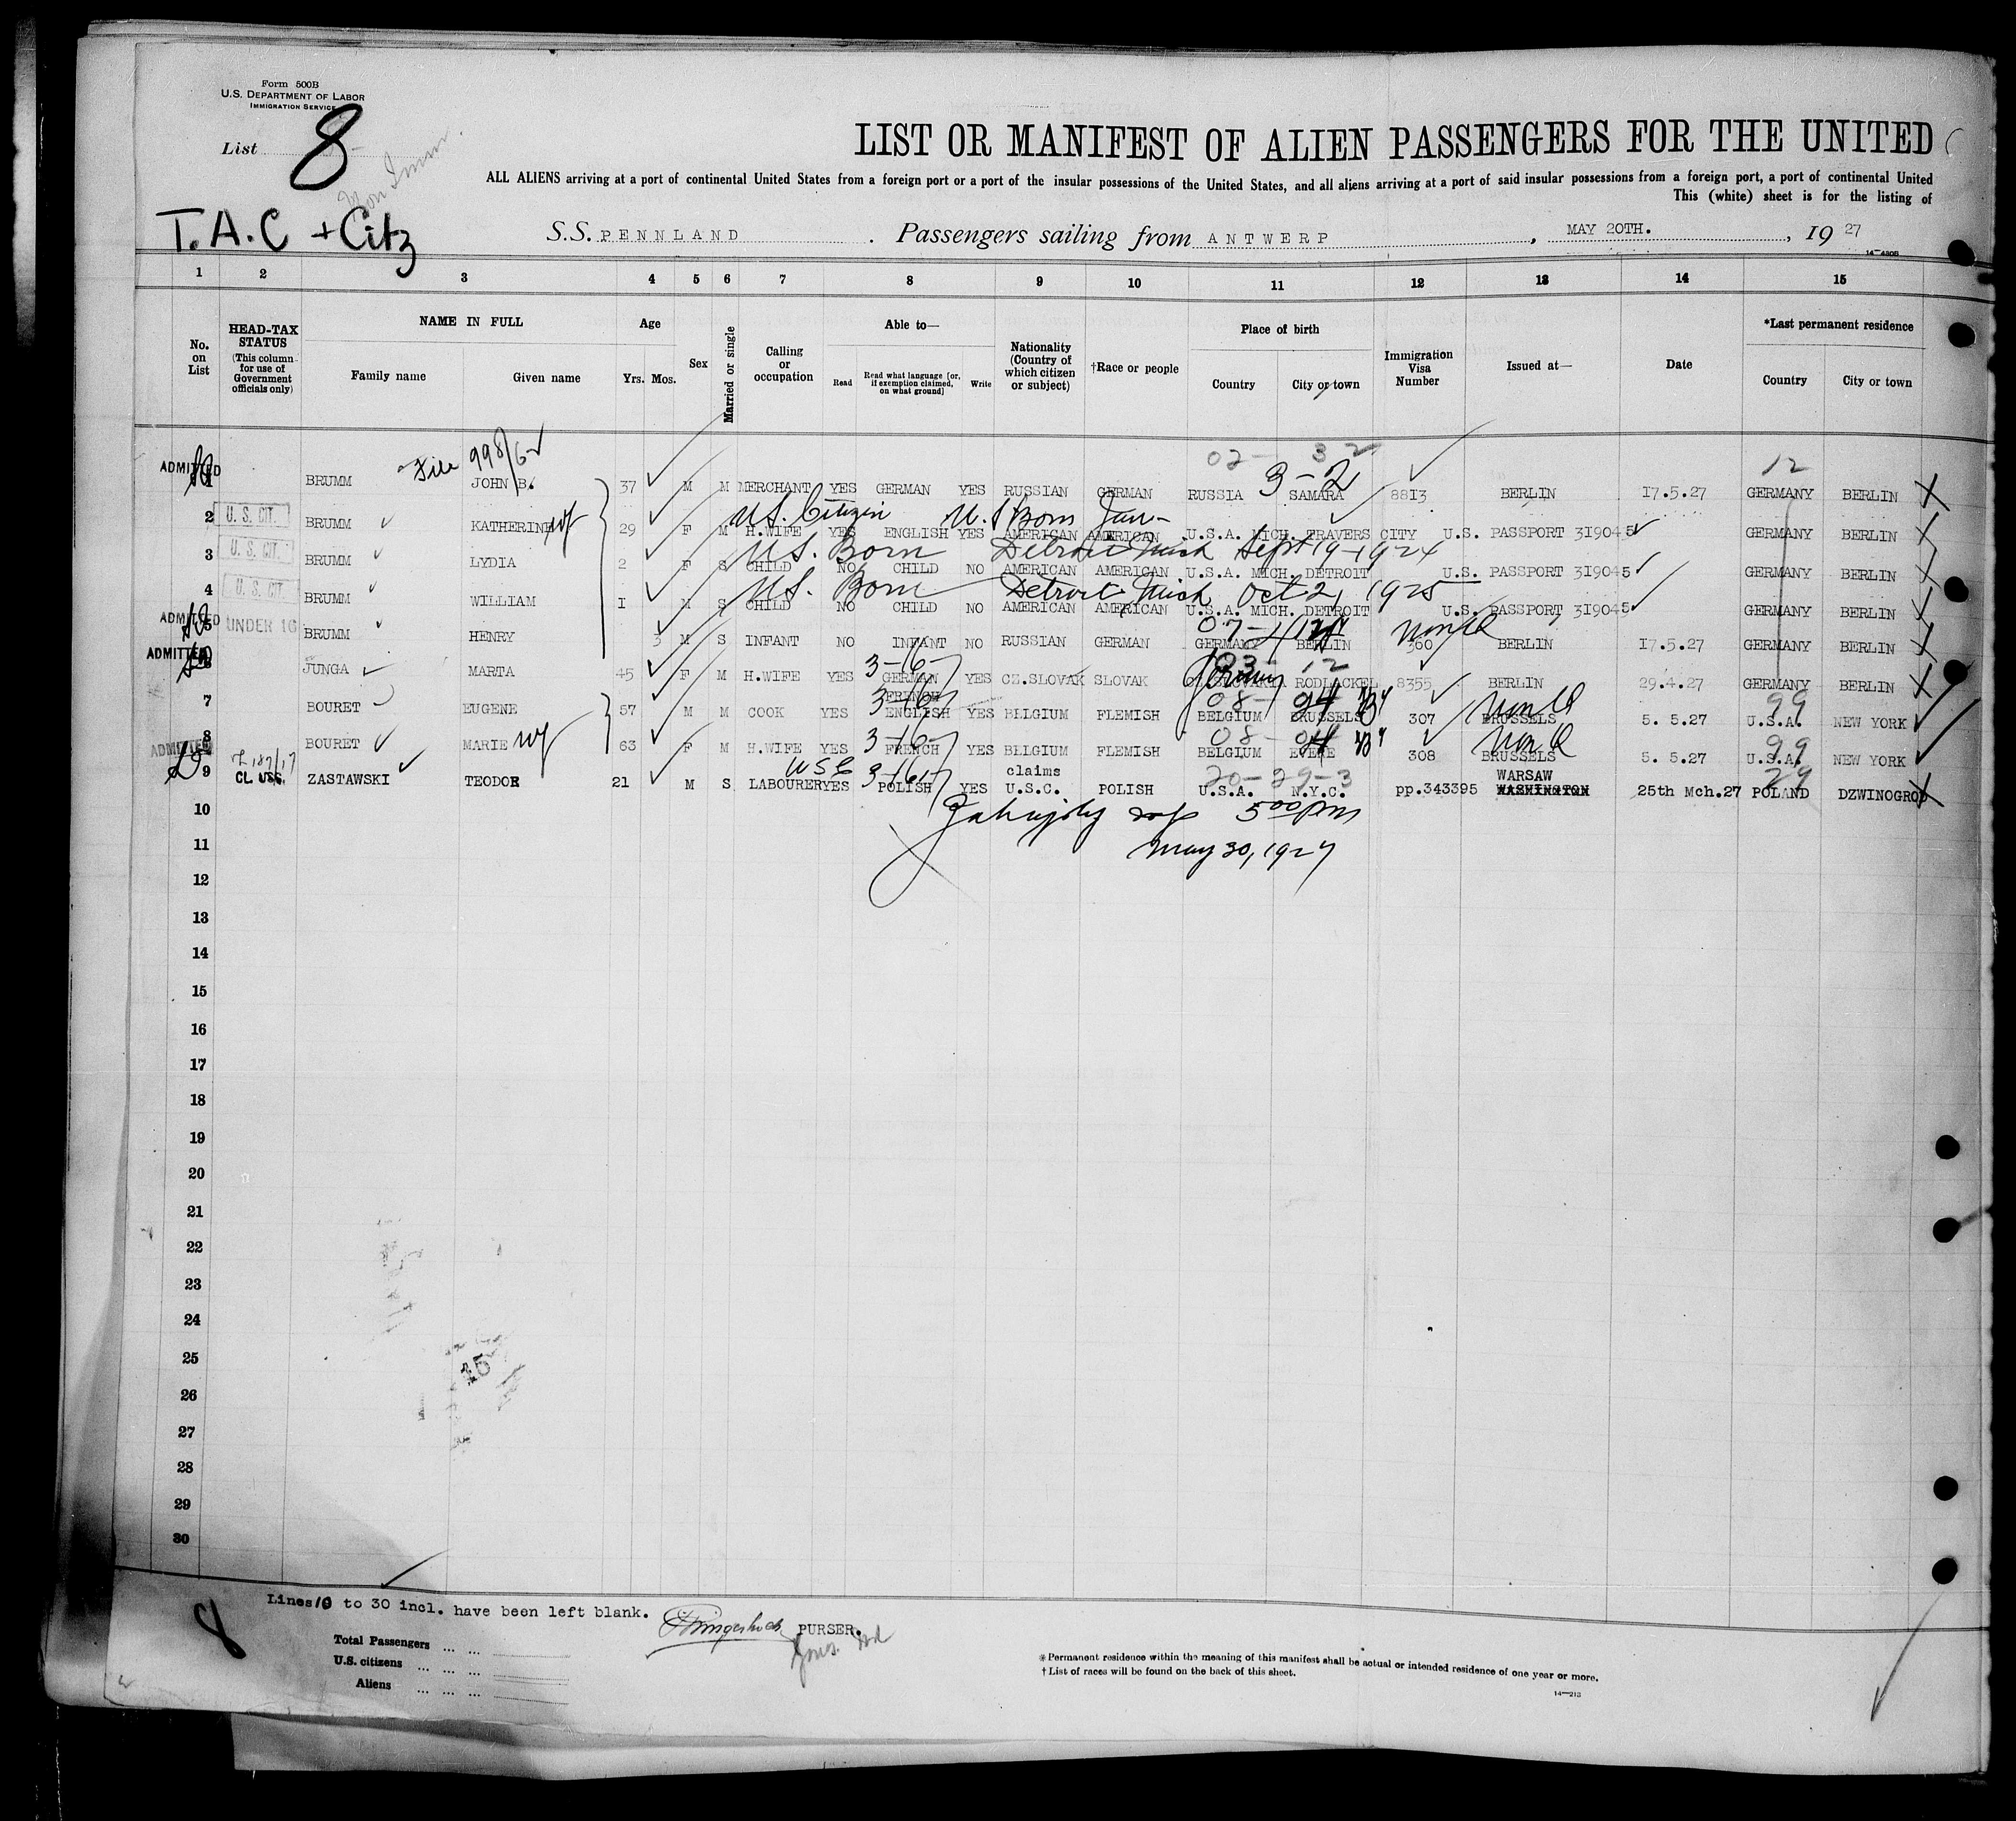 Form 500B
U.S. DEPARTMENT OF LABOR
IMMIGRATION SERVICE
List 8
Non Imm.
T.A.C + Citz
LIST OR MANIFEST OF ALIEN PASSENGERS FOR THE UNITED
ALL ALIENS arriving at a port of continental United States from a foreign port or a port of the insular possessions of the United States, and all aliens arriving at a port of said insular possessions from a foreign port, a port of continental United
This (white) sheet is for the listing of
S.S. PENNLAND. Passengers sailing from ANTWERP, MAY 20TH., 1927
1 2 3 4 5 6 7 8 9 10 11 12 13 14 15
No. on List
HEAD-TAX STATUS (This column for use of Government officials only)
NAME IN FULL
Family name Given name
Age
Yrs. Mos.
Sex
Married or single
Calling or occupation
Able to—
Read Read what language [or, if exemption claimed, on what ground] Write
Nationality (Country of which citizen or subject)
†Race or people
Place of birth
Country City or town
Immigration Visa Number
Issued at—
Date
*Last permanent residence
Country City or town
File 998/6 02- 32 12
ADMITTED 1 BRUMM JOHN B. 37 M M MERCHANT YES GERMAN YES RUSSIAN GERMAN RUSSIA 3-2 SAMARA 8813 BERLIN 17.5.27 GERMANY BERLIN
U.S. Citizen U.S Born Jan-
2 U. S. CIT. BRUMM KATHERINE wf 29 F M H.WIFE YES ENGLISH YES AMERICAN AMERICAN U.S.A. MICH. TRAVERS CITY U.S. PASSPORT 319045 GERMANY BERLIN
U.S. Born Detroit Mich Sept 19-1924
3 U. S. CIT. BRUMM LYDIA 2 F S CHILD NO CHILD NO AMERICAN AMERICAN U.S.A. MICH. DETROIT U.S. PASSPORT 319045 GERMANY BERLIN
U.S. Born Detroit Mich Oct 2, 1925
4 U. S. CIT. BRUMM WILLIAM I M S CHILD NO CHILD NO AMERICAN AMERICAN U.S.A. MICH. DETROIT U.S. PASSPORT 319045 GERMANY BERLIN
ADMITTED 5 UNDER 16 BRUMM HENRY 3 M S INFANT NO INFANT NO RUSSIAN GERMAN GERMANY BERLIN 360 BERLIN 17.5.27 GERMANY BERLIN
ADMITTED 6 JUNGA MARTA 45 F M H.WIFE YES GERMAN YES CZ.SLOVAK SLOVAK Germany RODLACKEL 8355 BERLIN 29.4.27 GERMANY BERLIN
FRENCH
7 BOURET EUGENE 57 M M COOK YES ENGLISH YES BELGIUM FLEMISH BELGIUM BRUSSELS 307 BRUSSELS 5. 5.27 U.S.A. NEW YORK
ADMITTED 8 BOURET MARIE wf 63 F M H.WIFE YES FRENCH YES BELGIUM FLEMISH BELGIUM EVERE 308 BRUSSELS 5. 5.27 U.S.A. NEW YORK
USC claims 20-29-3 WARSAW 29
9 CL USC. ZASTAWSKI TEODOR 21 M S LABOURER YES POLISH YES U.S.C. POLISH U.S.A. N.Y.C. pp.343395 WASHINGTON 25th Mch.27 POLAND DZWINOGROD
10 5 00 pm
11 May 30, 1927
12
13
14
15
16
17
18
19
20
21
22
23
24
25
26
27
28
29
30
15
Lines 10 to 30 incl. have been left blank.
PURSER.
8
Total Passengers ... ...
U.S. citizens ... ... ...
Aliens ... ... ...
* Permanent residence within the meaning of this manifest shall be actual or intended residence of one year or more.
† List of races will be found on the back of this sheet.
14—213